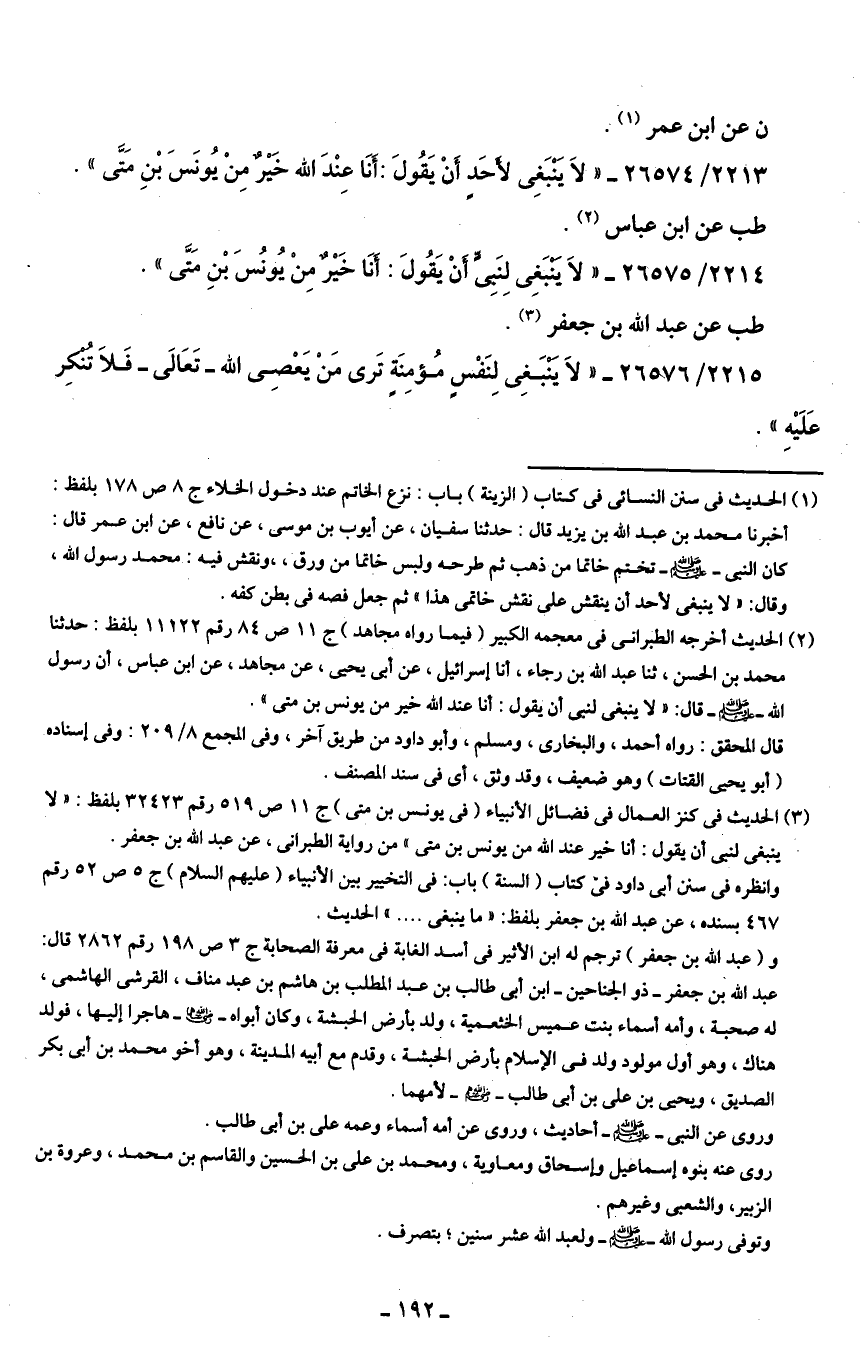 ن عن ابن عمر (١) .
٢٢١٣/ ٢٦٥٧٤ ـ « لاَ يَنْبَغِى لأَحَدٍ أَنْ يَقُولَ : أَنَا عِنْدَ الله خَيْرٌ مِنْ يُونُسَ بْنِ مَتَّى » .
طب عن ابن عباس (٢) .
٢٢١٤/ ٢٦٥٧٥ ـ « لاَ يَنْبَغِى لِنَبِىٍّ أَنْ يَقُولَ : أَنَا خَيْرٌ مِنْ يُونُسَ بْنِ مَتَّى » .
طب عن عبد الله بن جعفر (٣) .
٢٢١٥/ ٢٦٥٧٦ ـ « لاَ يَنْبَغِى لِنَفْسٍ مُؤمِنَةٍ تَرى مَنْ يَعْصِى الله ـ تَعَالَى ـ فَلاَ تُنْكِر
عَلَيْهِ » .
(١) الحديث فى سنن النسائى فى كتاب ( الزينة ) باب : نزع الخاتم عند دخول الخلاء ج ٨ ص ١٧٨ بلفظ :
أخبرنا محمد بن عبد الله بن يزيد قال : حدثنا سفيان ، عن أيوب بن موسى ، عن نافع ، عن ابن عمر قال :
كان النبى ـ ﷺ ـ تختم خاتما من ذهب ثم طرحه ولبس خاتما من ورق ، ،ونقش فيه : محمد رسول الله ،
وقال: « لا ينبغى لأحد أن ينقش على نقش خاتمى هذا » ثم جعل فصه فى بطن كفه .
(٢) الحديث أخرجه الطبرانى فى معجمه الكبير ( فيما رواه مجاهد ) ج ١١ ص ٨٤ رقم ١١١٢٢ بلفظ : حدثنا
محمد بن الحسن ، ثنا عبد الله بن رجاء ، أنا إسرائيل ، عن أبى يحيى ، عن مجاهد ، عن ابن عباس ، أن رسول
الله ـ ﷺ ـ قال: « لا ينبغى لنبى أن يقول : أنا عند الله خير من يونس بن متى » .
قال المحقق : رواه أحمد ، والبخارى ، ومسلم ، وأبو داود من طريق آخر ، وفى المجمع ٨/ ٢٠٩ : وفى إسناده
( أبو يحيى القتات ) وهو ضعيف ، وقد وثق ، أى فى سند المصنف .
(٣) الحديث فى كنز العمال فى فضائل الأنبياء ( فى يونس بن متى ) ج ١١ ص ٥١٩ رقم ٣٢٤٢٣ بلفظ : « لا
ينبغى لنبى أن يقول : أنا خير عند الله من يونس بن متى » من رواية الطبرانى ، عن عبد الله بن جعفر .
وانظره فى سنن أبى داود فى كتاب ( السنة ) باب: فى التخيير بين الأنبياء ( عليهم السلام ) ج ٥ ص ٥٢ رقم
٤٦٧ بسنده ، عن عبد الله بن جعفر بلفظ: « ما ينبغى .... » الحديث .
و ( عبد الله بن جعفر ) ترجم له ابن الأثير فى أسد الغابة فى معرفة الصحابة ج ٣ ص ١٩٨ رقم ٢٨٦٢ قال:
عبد الله بن جعفر ـ ذو الجناحين ـ ابن أبى طالب بن عبد المطلب بن هاشم بن عبد مناف ، القرشى الهاشمى ،
له صحبة ، وأمه أسماء بنت عميس الخثعمية ، ولد بأرض الحبشة ، وكان أبواه ـ رضي الله عنهما ـ هاجرا إليها ، فولد
هناك ، وهو أول مولود ولد فى الإسلام بأرض الحبشة ، وقدم مع أبيه المدينة ، وهو أخو محمد بن أبى بكر
الصديق ، ويحيى بن على بن أبى طالب ـ رضي الله عنهم ـ لأمهما .
وروى عن النبى ـ ﷺ ـ أحاديث ، وروى عن أمه أسماء وعمه على بن أبى طالب .
روى عنه بنوه إسماعيل وإسحاق ومعاوية ، ومحمد بن على بن الحسين والقاسم بن محمد ، وعروة بن
الزبير، والشعبى وغيرهم .
وتوفى رسول الله ـ ﷺ ـ ولعبد الله عشر سنين ؛ بتصرف .
ـ ١٩٢ ـ